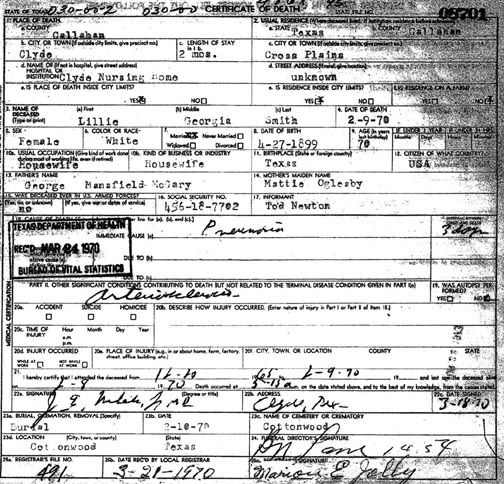 STATE OF TEXAS 030-00-2 030-0 CERTIFICATE OF DEATH STATE FILE NO. 08701
1. PLACE OF DEATH 2. USUAL RESIDENCE (Where deceased lived. If institution: residence before admission)
a. COUNTY Callahan a. STATE Texas b. COUNTY Callahan
b. CITY OR TOWN (If outside city limits, give precinct no.) c. LENGTH OF STAY in 1 b. c. CITY OR TOWN (If outside city limits, give precinct no.)
Clyde 2 mos. Cross Plains
d. NAME OF (If not in hospital, give street address) HOSPITAL OR INSTITUTION Clyde Nursing Home d. STREET ADDRESS unknown
e. IS PLACE OF DEATH INSIDE CITY LIMITS? YES NO e. IS RESIDENCE INSIDE CITY LIMITS? YES NO f. IS RESIDENCE ON A FARM?
3. NAME OF DECEASED (Type or print) (a) First (b) Middle (c) Last 4. DATE OF DEATH
Lillie Georgia Smith 2-9-70
5. SEX 6. COLOR OR RACE 7. Married Never Married Widowed Divorced 8. DATE OF BIRTH 9. AGE (In years last birthday)
Female White 4-27-1899 70
10a. USUAL OCCUPATION (Give kind of work done during most of working life, even if retired) 10b. KIND OF BUSINESS OR INDUSTRY 11. BIRTHPLACE (State or foreign country) 12. CITIZEN OF WHAT COUNTRY?
Housewife Housewife Texas USA
13. FATHER'S NAME 14. MOTHER'S MAIDEN NAME
George Mansfield McCary Mattie Oglesby
15. WAS DECEASED EVER IN U.S. ARMED FORCES? 16. SOCIAL SECURITY NO. 17. INFORMANT
(Yes, no, or unknown) (If yes, give war or dates of service)
no 456-18-7702 Ted Newton
18. CAUSE OF DEATH line for (a), (b), and (c).
TEXAS DEPARTMENT OF HEALTH
REC'D MAR 24 1970
BUREAU OF VITAL STATISTICS
IMMEDIATE CAUSE (a) Pneumonia 3 days
DUE TO (b)
DUE TO (c)
PART II. OTHER SIGNIFICANT CONDITIONS CONTRIBUTING TO DEATH BUT NOT RELATED TO THE TERMINAL DISEASE CONDITION GIVEN IN PART I(a) 19. WAS AUTOPSY PERFORMED?
Arteriosclerosis YES NO
MEDICAL CERTIFICATION
20a. ACCIDENT SUICIDE HOMICIDE 20b. DESCRIBE HOW INJURY OCCURRED. (Enter nature of injury in Part I or Part II of item 18.)
20c. TIME OF INJURY Hour Month Day Year
a.m.
p.m.
20d. INJURY OCCURRED 20e. PLACE OF INJURY (e.g., in or about home, farm, factory, street, office building, etc.) 20f. CITY, TOWN, OR LOCATION COUNTY STATE
WHILE AT WORK NOT WHILE AT WORK
21. I hereby certify that I attended the deceased from
70 Death occurred at on the date stated above, and to the best of my knowledge, from the causes stated
22a. SIGNATURE (Degree or title) 22b. ADDRESS 22c. DATE SIGNED
3-18-70
23a. BURIAL, CREMATION, REMOVAL (Specify) 23b. DATE 23c. NAME OF CEMETERY OR CREMATORY
Burial 2-10-70 Cottonwood
23d. LOCATION (City, town, or county) (State) 24. FUNERAL DIRECTOR'S SIGNATURE
Cottonwood Texas 1454
25a. REGISTRAR'S FILE NO. 25b. DATE REC'D BY LOCAL REGISTRAR
491 3-21-1970 Marion E Jolly